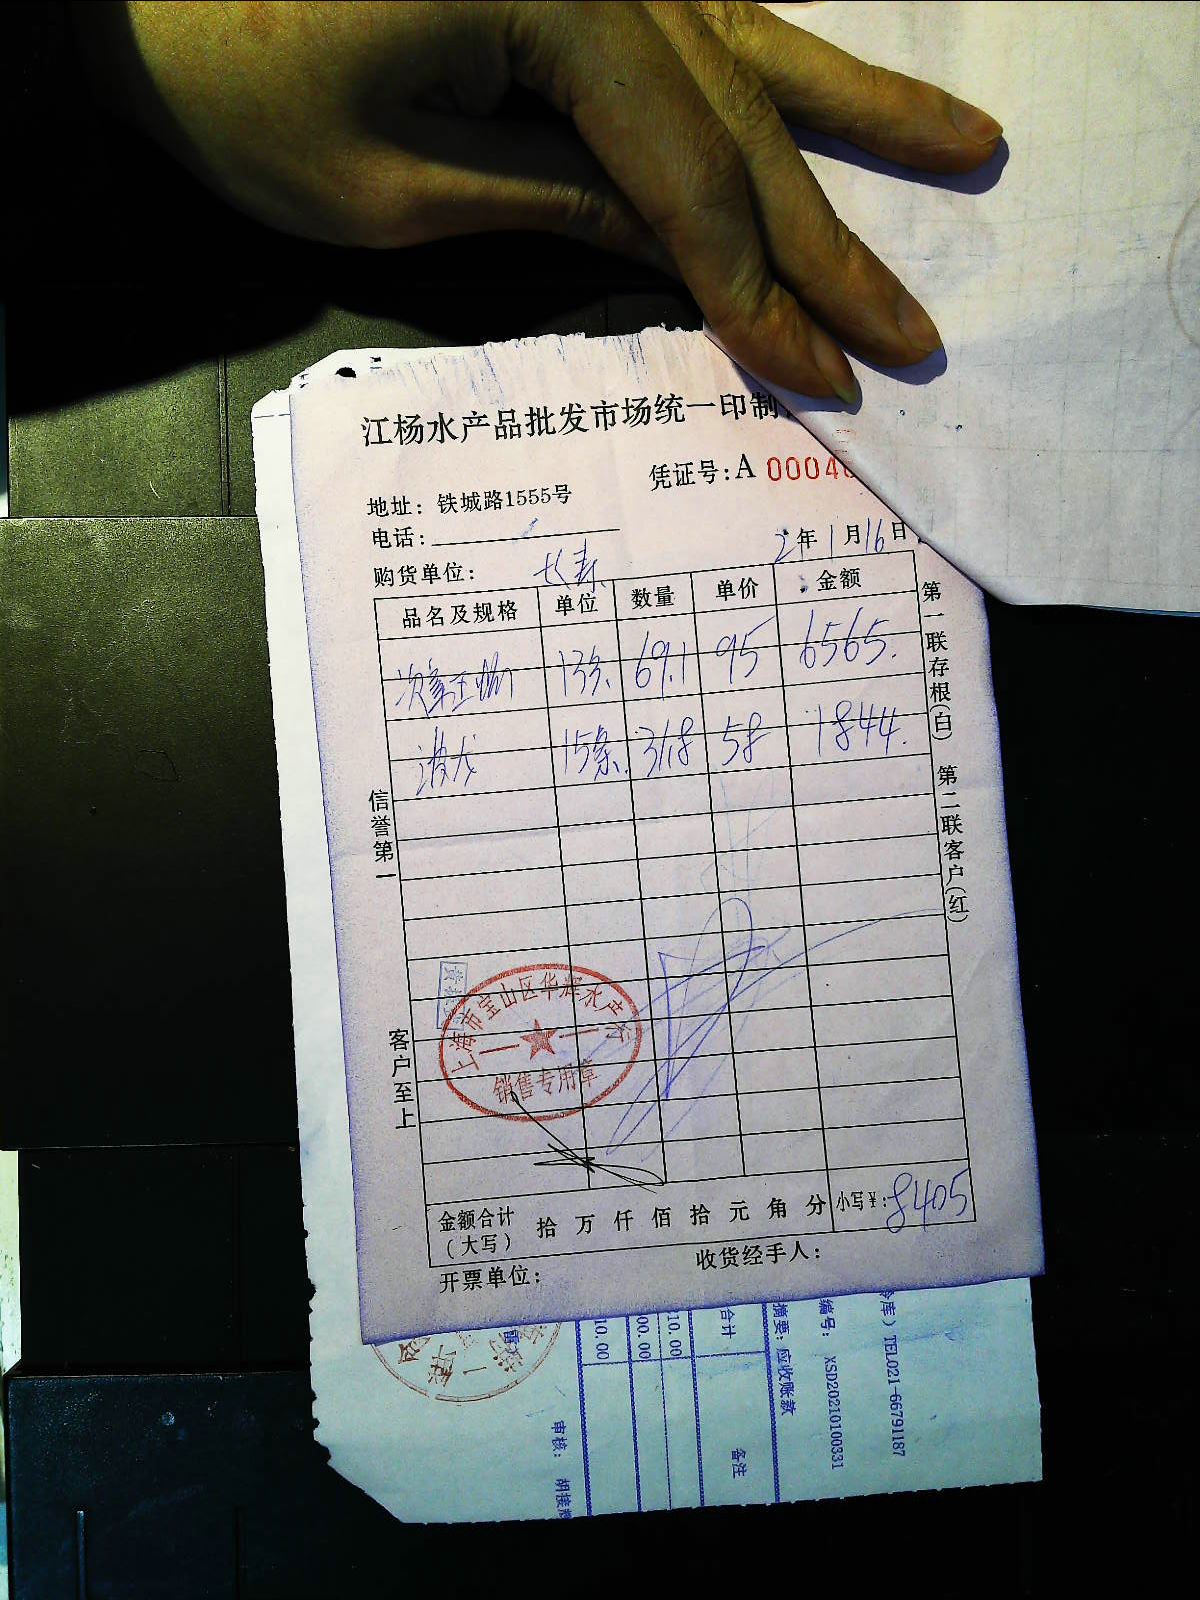 江杨水产品批发市场统一印制
凭证号:A 0004
地址: 铁城路1555号
电话:
2年1月16日
购货单位: 长寿
品名及规格 单位 数量 单价 金额
13条 69.1 95 6565.
波龙 15条. 31.8 58 1844.
信誉第一
客户至上
第一联存根(白) 第二联客户(红)
上海市宝山区华辉水产行
销售专用章
金额合计(大写) 拾 万 仟 佰 拾 元 角 分 小写¥: 8405
开票单位: 收货经手人:
冷库) TEL021-66791187
编号: XSD20210100331
摘要: 应收账款
合计 备注
10.00
00.00
10.00
审核: